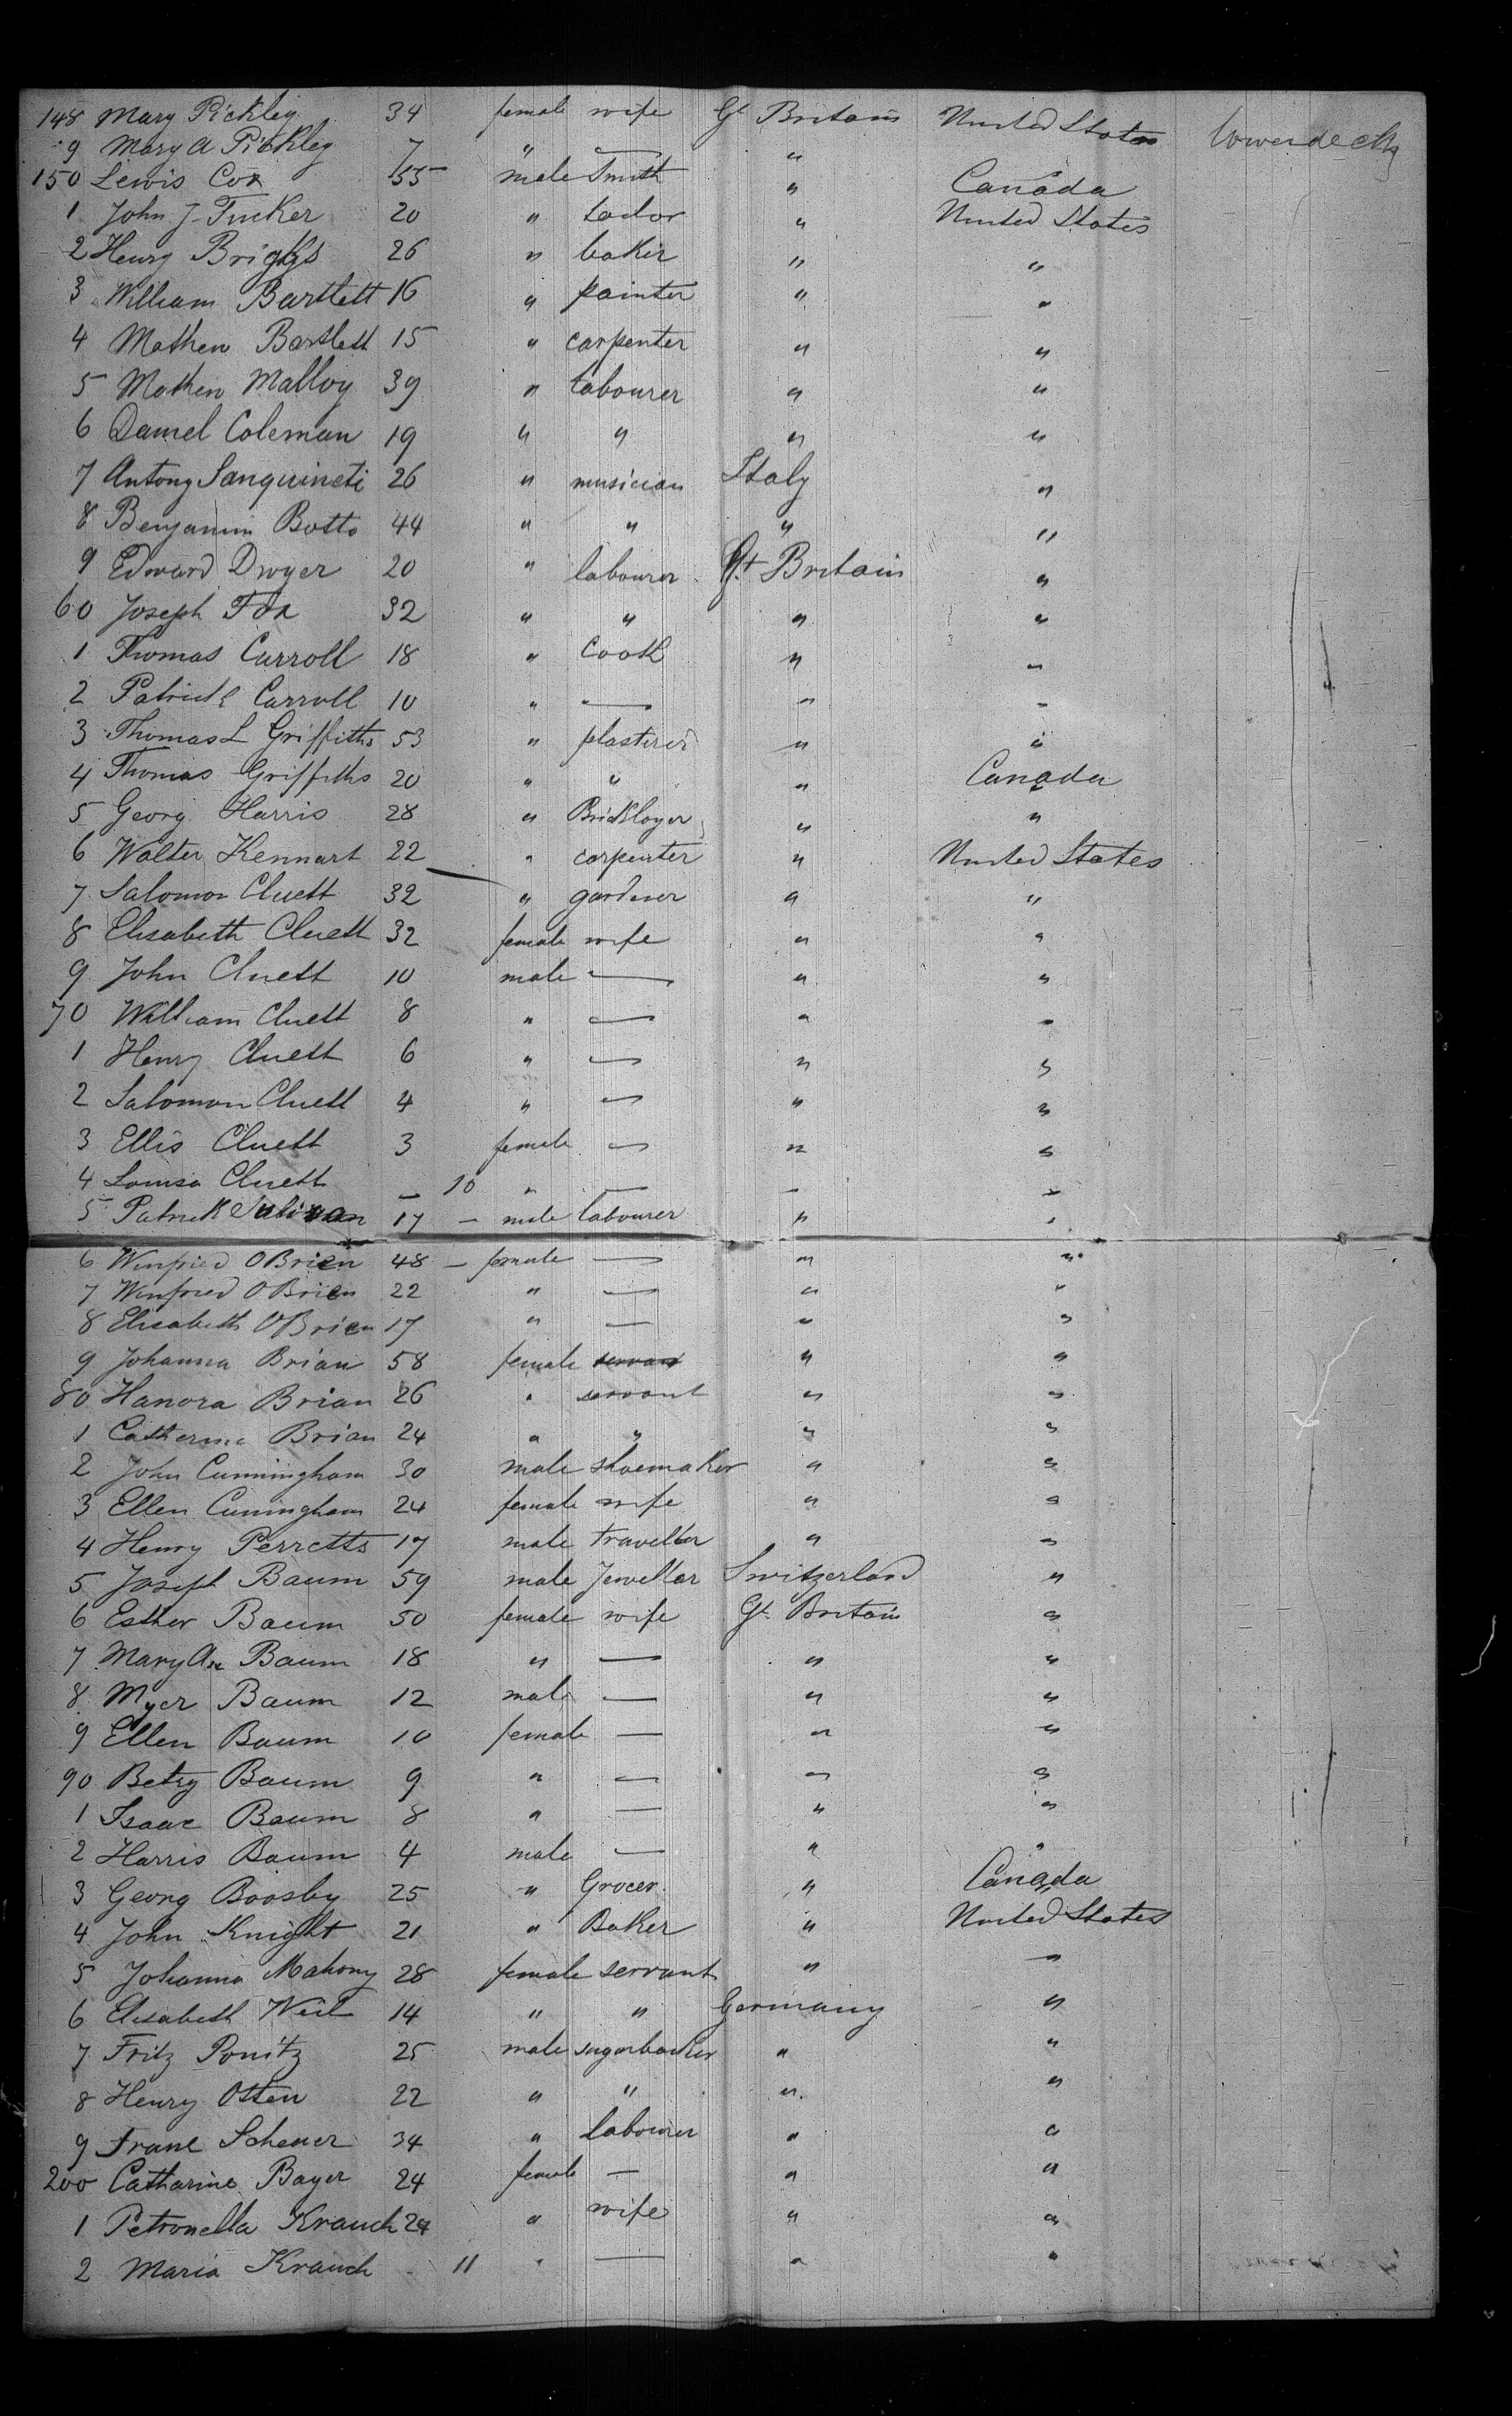 148 Mary Pickley 34 female wife Gt Britain United States lowerdeck
9 Mary A Pickley 7 " — " 
150 Lewis Cox 55 male Smith " Canada
1 John J Tucker 20 " tailor " United States
2 Henry Briggs 26 " baker " "
3 William Bartlett 16 " painter " "
4 Mathew Bartlett 15 " carpenter " "
5 Mathew Malloy 39 " labourer " "
6 Daniel Coleman 19 " " " "
7 Antony Sanguineti 26 " musician Italy "
8 Benjamin Botto 44 " " " "
9 Edward Dwyer 20 " labourer Gt Britain "
60 Joseph Fox 32 " " " "
1 Thomas Carroll 18 " Cook " "
2 Patrick Carroll 10 " — " "
3 Thomas L Griffiths 53 " plasterer " "
4 Thomas Griffiths 20 " " " Canada
5 Georg Harris 28 " Bricklayer " "
6 Walter Kennart 22 " carpenter " United States
7 Salomon Cluett 32 " gardener " "
8 Elisabeth Cluett 32 female wife " "
9 John Cluett 10 male — " "
70 William Cluett 8 " — " "
1 Henry Cluett 6 " — " "
2 Salomon Cluett 4 " — " "
3 Ellis Cluett 3 female — " "
4 Louisa Cluett — 10 " — " "
5 Patrick Sulivan 17 — male labourer " "
6 Winfried OBrien 48 — female — " "
7 Winfried OBrien 22 " — " "
8 Elisabeth OBrien 17 " — " "
9 Johanna Brian 58 female servant " "
80 Hanora Brian 26 " servant " "
1 Catherine Brian 24 " " " "
2 John Cunningham 30 male shoemaker " "
3 Ellen Cuningham 24 female wife " "
4 Henry Perretts 17 male traveller " "
5 Joseph Baum 59 male Jeweller Switzerland "
6 Esther Baum 50 female wife Gt Britain "
7 Mary An Baum 18 " — " "
8 Myer Baum 12 male — " "
9 Ellen Baum 10 female — " "
90 Betsy Baum 9 " — " "
1 Isaac Baum 8 " — " "
2 Harris Baum 4 male — " "
3 Georg Boosby 25 " Grocer " Canada
4 John Knight 21 " Baker " United States
5 Johanna Mahony 28 female servant " "
6 Elisabeth Weil 14 " " Germany "
7 Fritz Ponitz 25 male sugarbacker " "
8 Henry Otten 22 " " " "
9 Franz Scheuer 34 " labourer " "
200 Catharine Bayer 24 female — " "
1 Petronella Krauch 24 " wife " "
2 Maria Krauch 11 " — " "